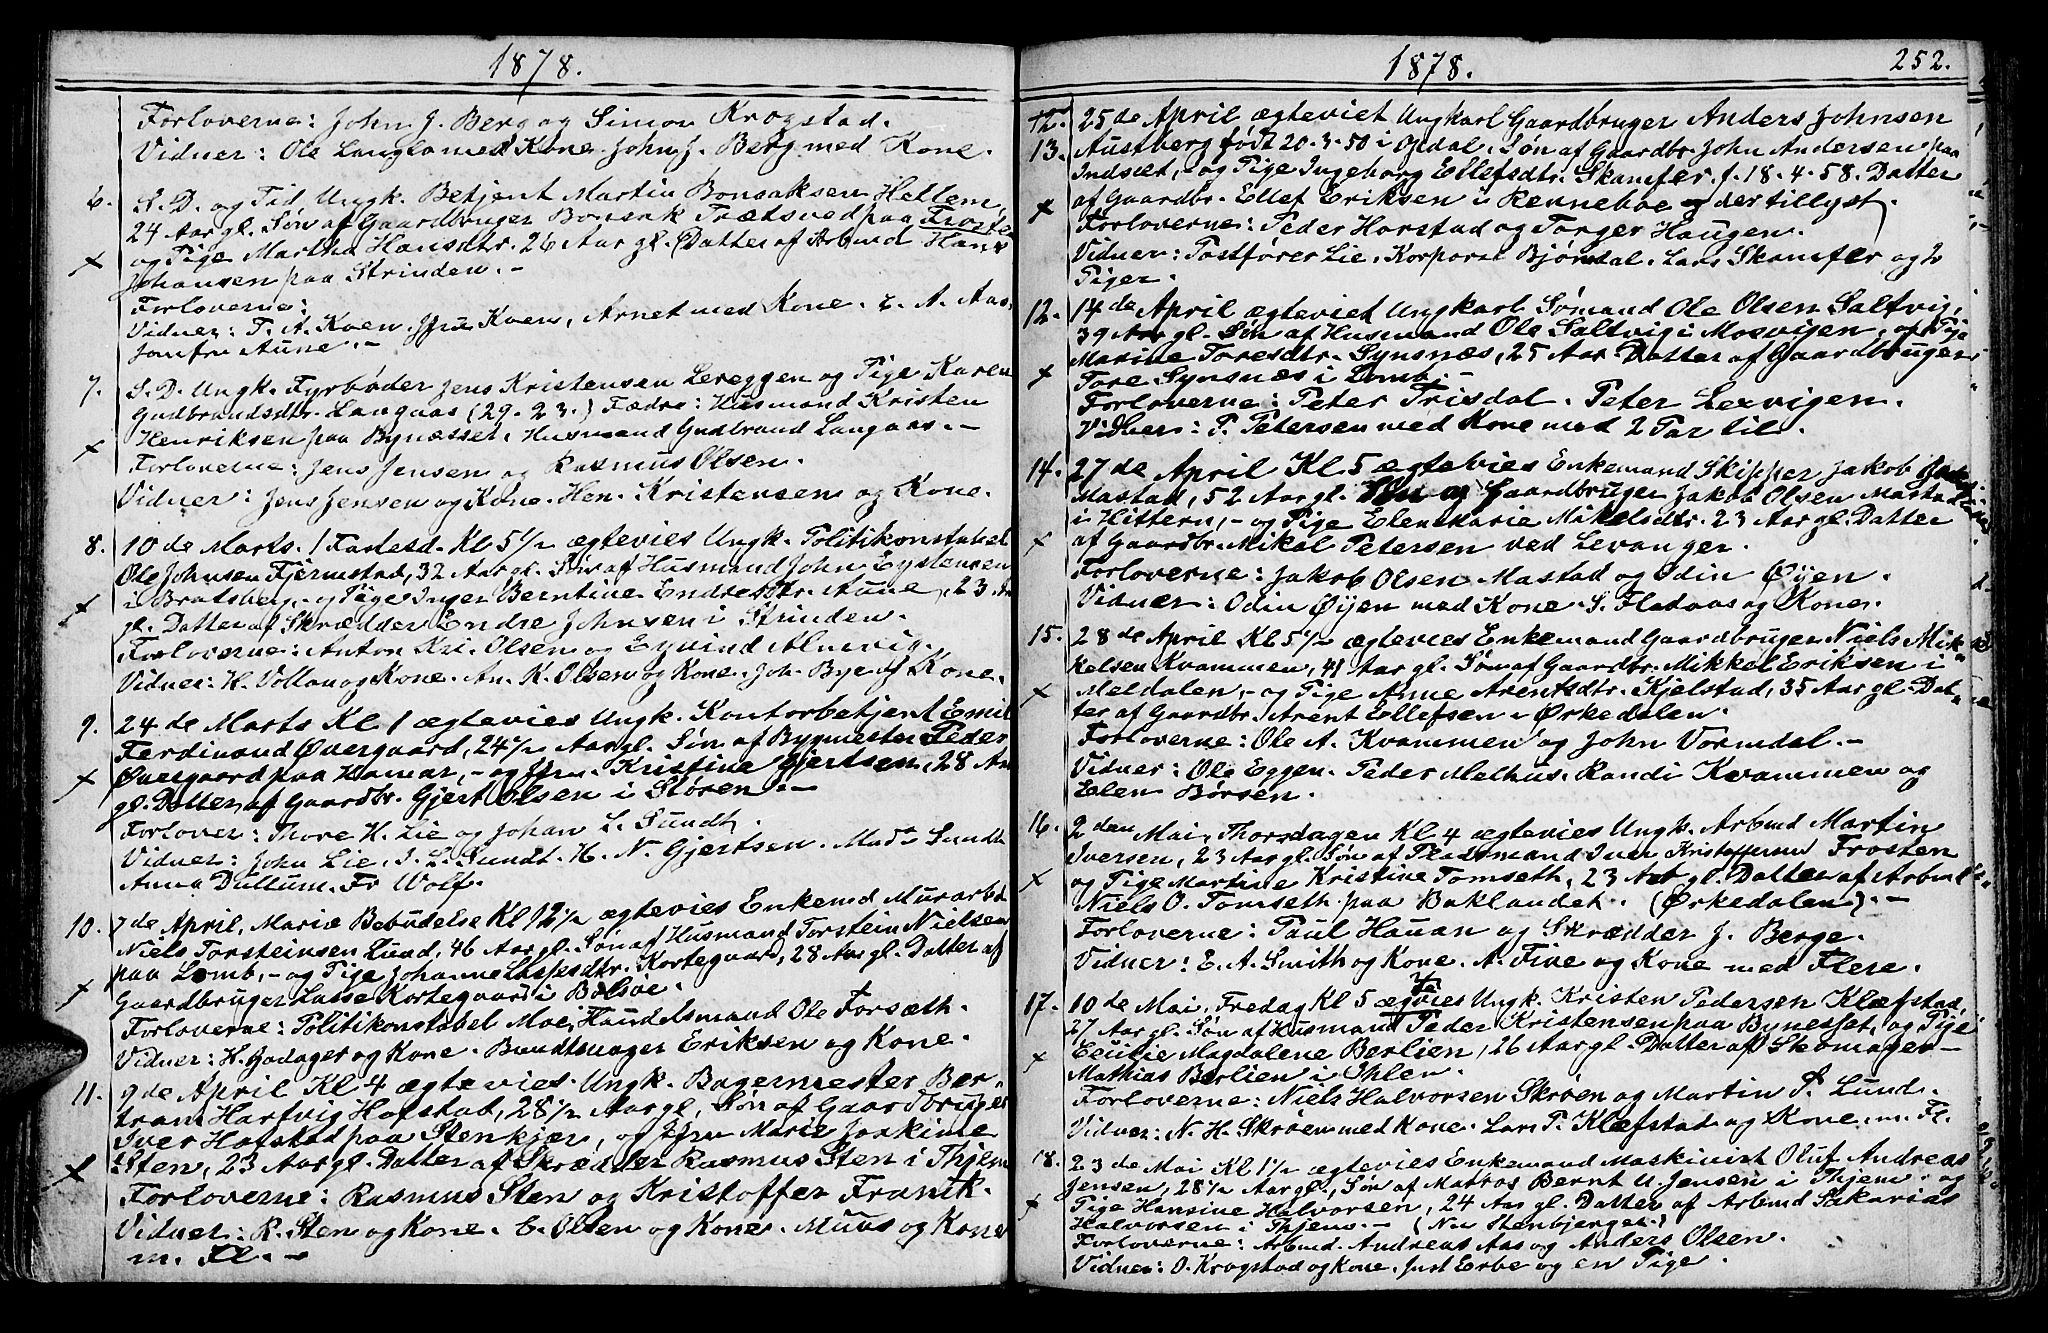 1878.
Forloverne: John J. Berg og Simon Krogstad.
Vidner: Ole Langlo med Kone. John J. Berg med Kone.
6. S. D. og Tid Ungk. Betjent Martin Bonsaksen Hellem
24 Aar gl. Søn af Gaardbruger Bonsak Trætsved paa Frosten
og Pige Martha Hansdtr. 26 Aar gl. (Datter af Arbmd Hans
x Johansen paa Strinden. -
Forloverne:
Vidner: T. A. Kven. Jfru Kven, Arnet med Kone. E. A. Aas,
Jomfru Aune. -
7. S. D. Ungk. Fyrbøder Jens Kristensen Lereggen og Pige Karen
Gudbrandsdtr. Langaas (29. 23.) Fædre: Husmand Kristen
x Henriksen paa Bynæsset. Husmand Gudbrand Langaas. -
Forloverne: Jens Jensen og Rasmus Olsen.
Vidner: Jens Jensen og Kone. Hen. Kristensen og Kone.
8. 10de Marts. 1 Fastesd. Kl 5 1/2 ægtevies Ungk. Politikonstabel
Ole Johnsen Fjermstad, 32 Aar gl. Søn af Husmand John Eystensen
x i Bratsberg, - og Pige Inger Berntine Endresdtr. Aune, 23 Aar
gl. Datter af Skrædder Endre Johnsen i Strinden.
Forloverne: Anton Kri. Olsen og Eyvind Alnevig.
Vidner: H. Vollan og Kone. An. K. Olsen og Kone. Joh. Bye og Kone.
9. 24de Marts Kl 1 ægtevies Ungk. Kontorbetjent Emil
Ferdinand Øvergaard, 24 1/2 Aar gl. Søn af Bygmester Peder
x Øvergaard paa Hamar, - og Jfru. Kristine Gjertsen, 28 Aar
gl. Datter af Gaardbr. Gjert Olsen i Støren. -
Forlover: Thore H. Lie og Johan L. Sundt.
Vidner: John Lie. J. L. Sundt. H. N. Gjertsen. Mad. Sundt
Anna Dullum. Fr Wolf.
10. 7de April, Mariæ Bebudelse Kl 12 1/2 ægtevies Enkemd Murarbd
Niels Torsteinsen Lund, 46 Aar gl. Søn af Husmand Torstein Nielsen
paa Lomb, - og Pige Johanne Lassesdtr. Kortegaard, 28 Aar gl. Datter af
x Gaardbruger Lasse Kortegaard i Bolsøe.
Forloverne: Politikonstabel Moe, Handelsmand Ole Forsæth.
Vidner: H. Gjødager og Kone. Bundtmager Eriksen og Kone.
11. 9de April Kl 4 ægtevies Ungk. Bagermester Ber-
tram Hartvig Hafstad, 28 1/2 Aar gl., Søn af Gaardbruger
Iver Hafstad paa Stenkjær, og Jfru Marie Joakime
x Sten, 23 Aar gl. Datter af Skrædder Rasmus Sten i Thjem
Forloverne: Rasmus Sten og Kristoffer Franik.
Vidner: R. Sten og Kone. C. Olsen og Kone. Muus og Kone
m. Fl. -
1878. 252.
12. 25de April ægteviet Ungkarl Gaardbruger Anders Johnsen
13. Austberg født 20-3-50 i Opdal. Søn af Gaardbr. John Andersen paa
Indset, - og Pige Ingeborg Ellefsdtr. Skamfer f. 18-4-58. Datter
x af Gaardbr. Ellef Eriksen i Renneboe og der tillyst.
Forloverne: Peder Harstad og Torger Haugen.
Vidner: Postfører Lie. Korporal Bjørndal. Lars Skamfer og 2
Piger.
12. 14de April ægteviet Ungkarl Sømand Ole Olsen Saltvig,
39 Aar gl. Søn af Husmand Ole Saltvig i Mosvigen, og Pige
Marine Toresdtr. Synsnæs, 25 Aar. Datter af Gaardbruger
x Tore Synsnæs i Lomb. -
Forloverne: Peter Trisdal. Peter Lexvigen.
Vidner: P. Petersen med Kone med 2 Par til.
14. 27de April Kl 5 ægtevies Enkemand Skipper Jakob
Mastad, 52 Aar gl. Søn af Gaardbruger Jakob Olsen Mastad
i Hittern, - og Pige Elen Marie Mikelsdtr. 23 Aar gl. Datter
x af Gaardbr. Mikal Petersen ved Levanger.
Forloverne: Jakob Olsen Mastad og Odin Øyen.
Vidner: Odin Øyen med Kone. S. Flataas og Kone.
15. 28de April Kl 5 1/2 ægtevies Enkemand Gaardbruger Niels Mik-
kelsen Kvammen, 41 Aar gl. Søn af Gaardbr. Mikkel Eriksen i
x Meldalen, - og Pige Anne Arentsdtr. Kjelstad, 35 Aar gl. Dat-
ter af Gaardbr. Arent Ellefsen i Ørkedalen.
Forloverne: Ole A. Kvammen og John Vormdal. -
Vidner: Ole Eggen. Peder Melhus. Randi Kvammen og
Elen Børsen.
16. 2den Mai, Thorsdagen Kl 4 ægtevies Ungk. Arbmd Martin
Iversen, 23 Aar gl. Søn af Pladsmand Iver Kristoffersen Frosten
x og Pige Martine Kristine Tomseth, 23 Aar gl. Datter af Arbmd
Niels O. Tomseth paa Baklandet. (Ørkedalen). -
Forloverne: Paul Hauan og Skrædder J. Berge.
Vidner: E. A. Smith og Kone. A. Fine og Kone med Flere.
17. 10de Mai, Fredag Kl 5 ægtevies Ungk. Kristen Pedersen Klæfstad,
27 Aar gl. Søn af Husmand Peder Kristensen paa Bynesset, og Pige
x Cecilie Magdalene Berlien, 26 Aar gl. Datter af Skomager
Mathias Berlien i Ihlen.
Forloverne: Niels Halvorsen Skrøen og Martin P. Lund.
Vidner: N. H. Skrøen med Kone. Lars P. Klæfstad og Kone m. Fl.
18. 23de Mai Kl 1 1/2 ægtevies Enkemand Maskinist Oluf Andreas
Jensen, 28 1/2 Aar gl., Søn af Matros Bernt U. Jensen i Thjem. og
x Pige Hansine Halvorsen, 24 Aar gl. Datter af Arbmd Sakarias
Halvorsen i Thjem. - (Nu Stenbjerget.)
Forloverne: Arbmd. Andreas Aas og Anders Olsen.
Vidner: O. Krogstad og Kone. Just Erbe og en Pige.